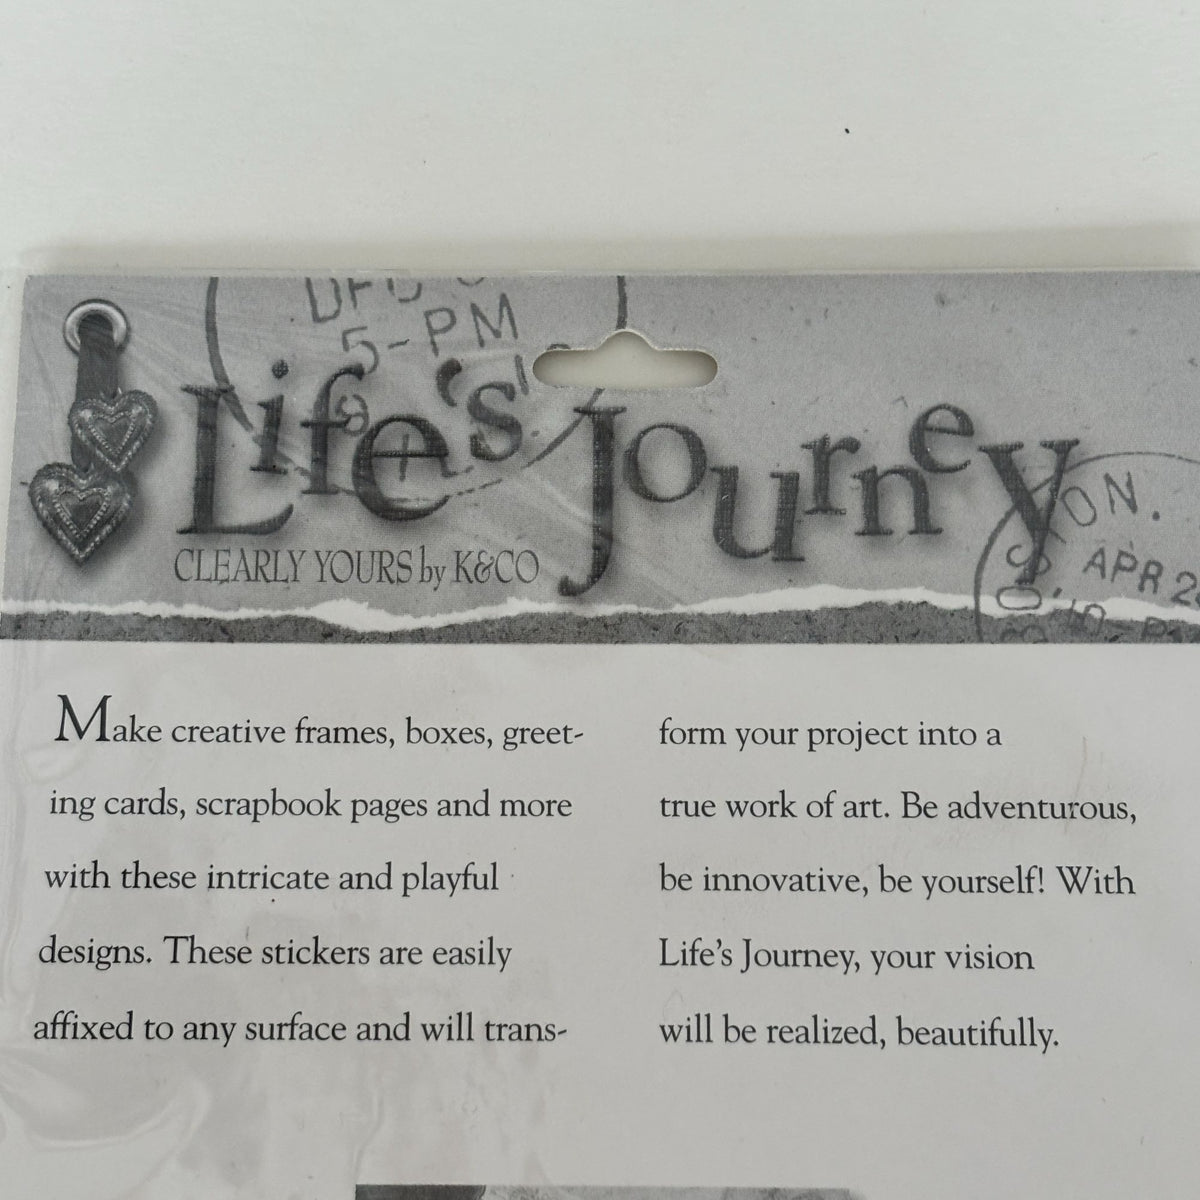 5-PM
Life's Journey
CLEARLY YOURS by K&CO
ON.
APR 2
Make creative frames, boxes, greet-
ing cards, scrapbook pages and more
with these intricate and playful
designs. These stickers are easily
affixed to any surface and will trans-
form your project into a
true work of art. Be adventurous,
be innovative, be yourself! With
Life's Journey, your vision
will be realized, beautifully.